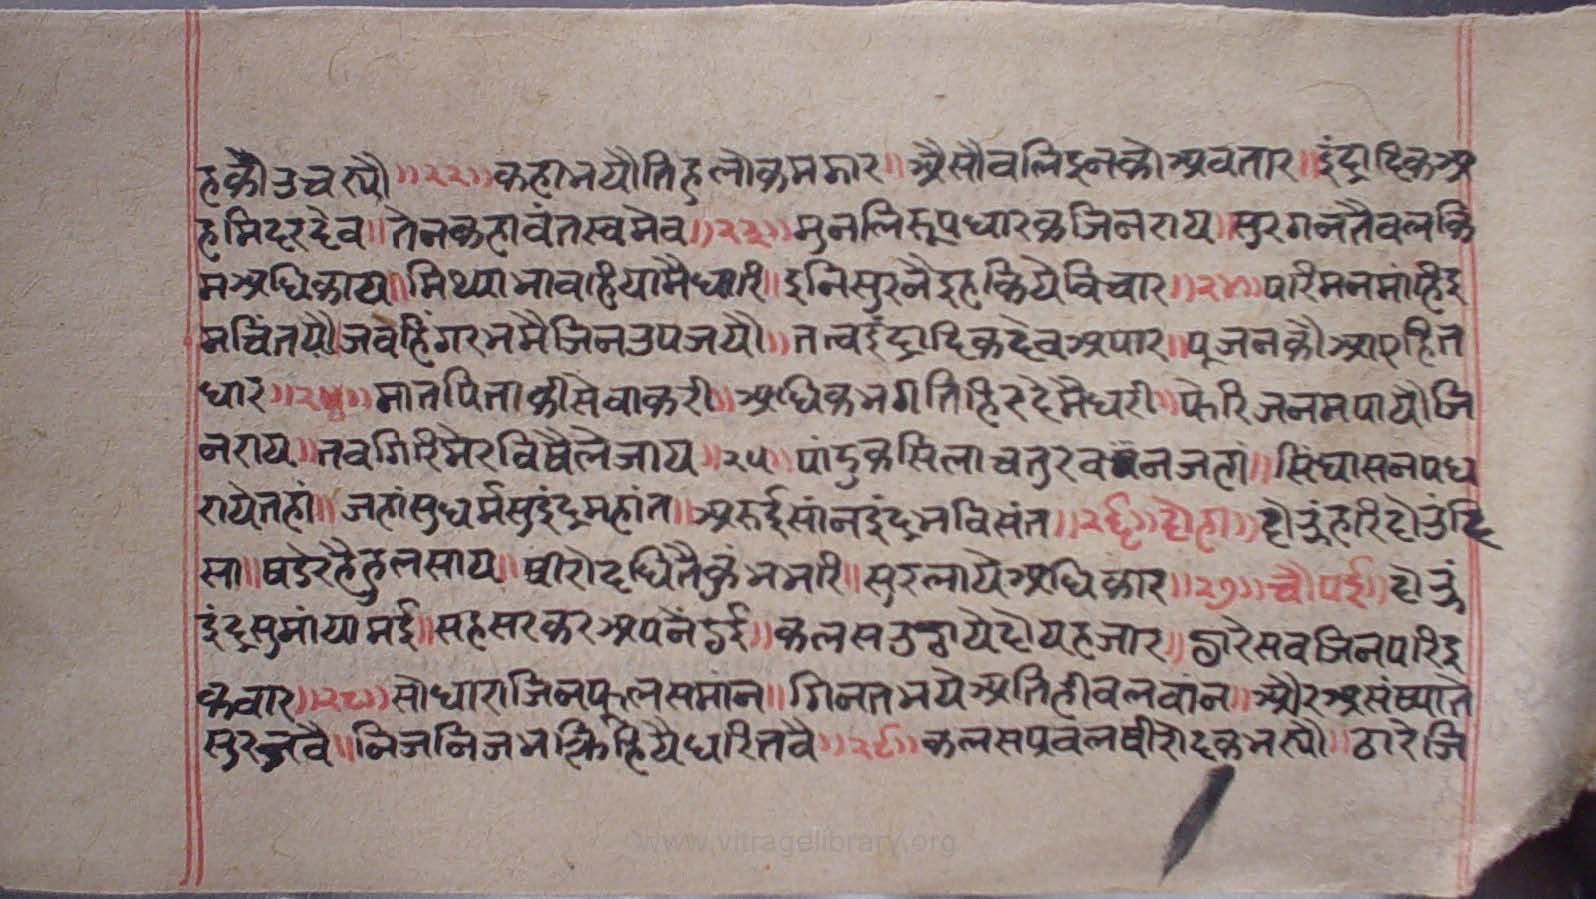 हकौउच्चर्‍यौ॥२२॥कहाभयौतिहुलोकमझार॥औसौवलिइनकोअवतार॥इंद्रादिकअ
हमिदरदेव॥तेनकहावंतस्वमेव॥२३॥मुनलिरूपधारकजिनराय॥सुरगनतैवलकि
मअधिकाय॥मिथ्याभावहियामैधारि॥इनिसुरनैइहकियेविचार॥२४॥पारिमनमांहिइ
मचिंतयौ॥जवहिंगरभमैजिनउपजयौ॥तत्वइंद्रादिकदेवअपार॥पूजनकौआएहित
धार॥२४॥मातपिताकीसेवाकरी॥अधिकभगतिहिरदेमैधरी॥फेरिजनमपायौजि
नराय॥तवगिरिमेरविषैलेजाय॥२५॥पांडुकसिलाचतुरवंनजहां॥सिंघासनपध
रायेतहां॥जहांसुधर्मसुइंद्रमहांत॥अरुईसांनइंद्रभविसंत॥२६॥दोहा॥दोऊंहरिदोउंदि
सा॥षडेरहैहुलसाय॥षीरोदधितैकुंभभरि॥सुरलायेअधिकार॥२७॥चौपई॥दोऊं
इंद्रसुमांयामई॥सहसरकरअपनेंठई॥कलसउठायेदोयहजार॥ढारेसवजिनपरिइ
कवार॥२८॥सोधाराजिनफूलसमांन॥गिनतभयेअतिहीवलवांन॥औरअसंष्याते
सुरजवै॥निजनिजभक्तिहियैधरितवै॥२९॥कलसप्रवलषीरोदकभर्‍यौ॥ढारेजि
www.vitragelibrary.org